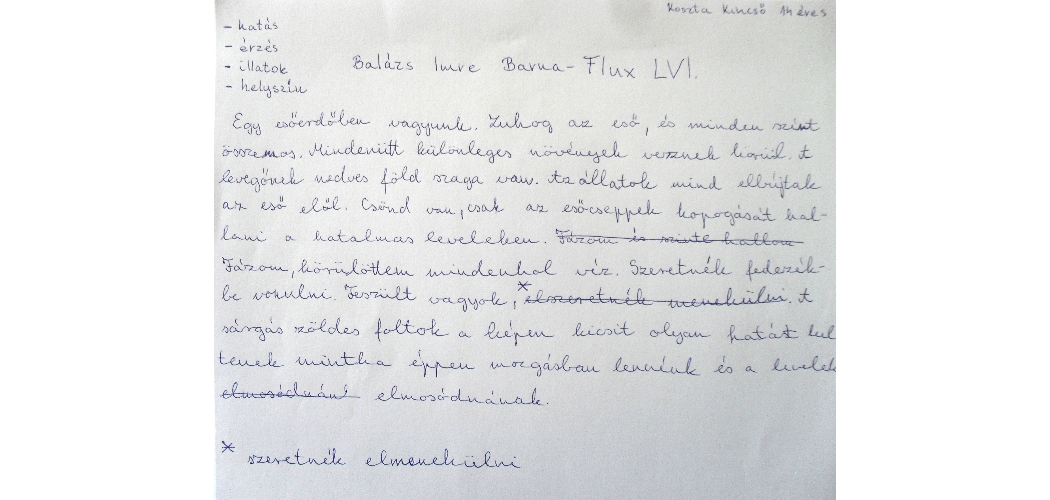 Koszta Kincső 14 éves
- hatás
- érzés
- illatok
- helyszín
Balázs Imre Barna - Flux LVI.
Egy esőerdőben vagyunk. Zuhog az eső, és minden színt
összemos. Mindenütt különleges növények vesznek körül. A
levegőnek nedves föld szaga van. Az állatok mind elbújtak
az eső elől. Csönd van, csak az esőcseppek kopogását hal-
lani a hatalmas leveleken. Fázom és szinte hallom
Fázom, körülöttem mindenhol víz. Szeretnék fedezék-
be vonulni. Feszült vagyok, * elszeretnék menekülni. A
sárgás zöldes foltok a képen kicsit olyan hatást kel
tenek mintha éppen mozgásban lennénk és a levelek
elmosódnán elmosódnának.
* szeretnék elmenekülni